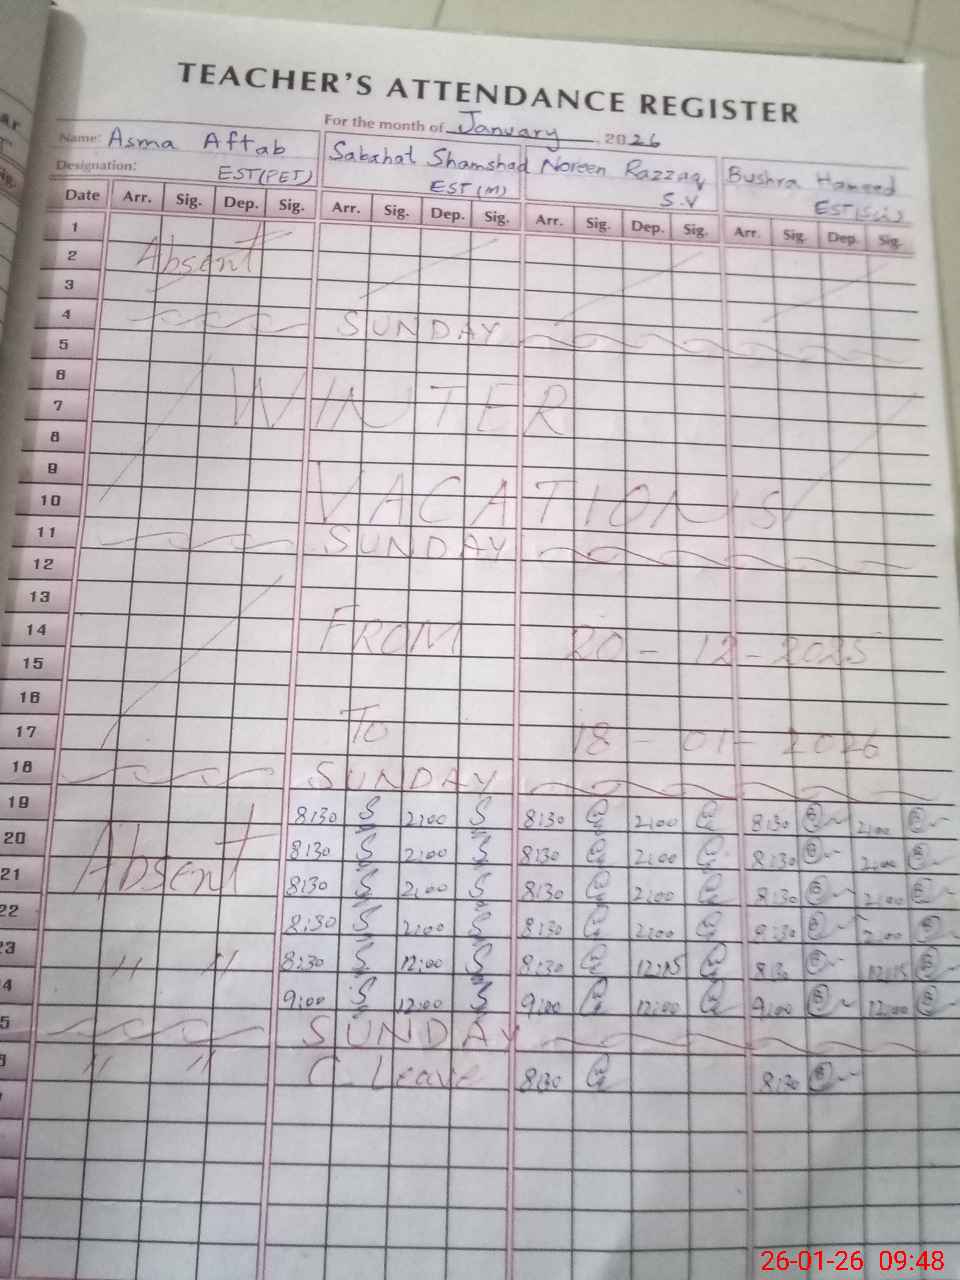 TEACHER'S ATTENDANCE REGISTER
For the month of January, 2026
Name: Asma Aftab Sabahat Shamshad Noreen Razzaq Bushra Hameed
Designation: EST(PET) EST(M) S.V EST(Sci)
Date Arr. Sig. Dep. Sig. Arr. Sig. Dep. Sig. Arr. Sig. Dep. Sig. Arr. Sig. Dep. Sig.
1
2 Absent
3
4 SUNDAY
5
6
7 WINTER
8
9
10 VACATIONS
11 SUNDAY
12
13
14 FROM 20-12-2025
15
16
17 To 18-01-2026
18 SUNDAY
19 8:30 S 2:00 S 8:30 2:00 8:30 2:00
20 8:30 S 2:00 S 8:30 2:00 8:30 2:00
21 Absent 8:30 S 2:00 S 8:30 2:00 8:30 2:00
22 8:30 S 2:00 S 8:30 2:00 8:30 2:00
23 " " 8:30 S 12:00 S 8:30 12:15 8:30 12:15
4 9:00 S 12:00 S 9:00 12:00 9:00 12:00
5 SUNDAY
" " C. Leave 8:30 8:30
26-01-26 09:48